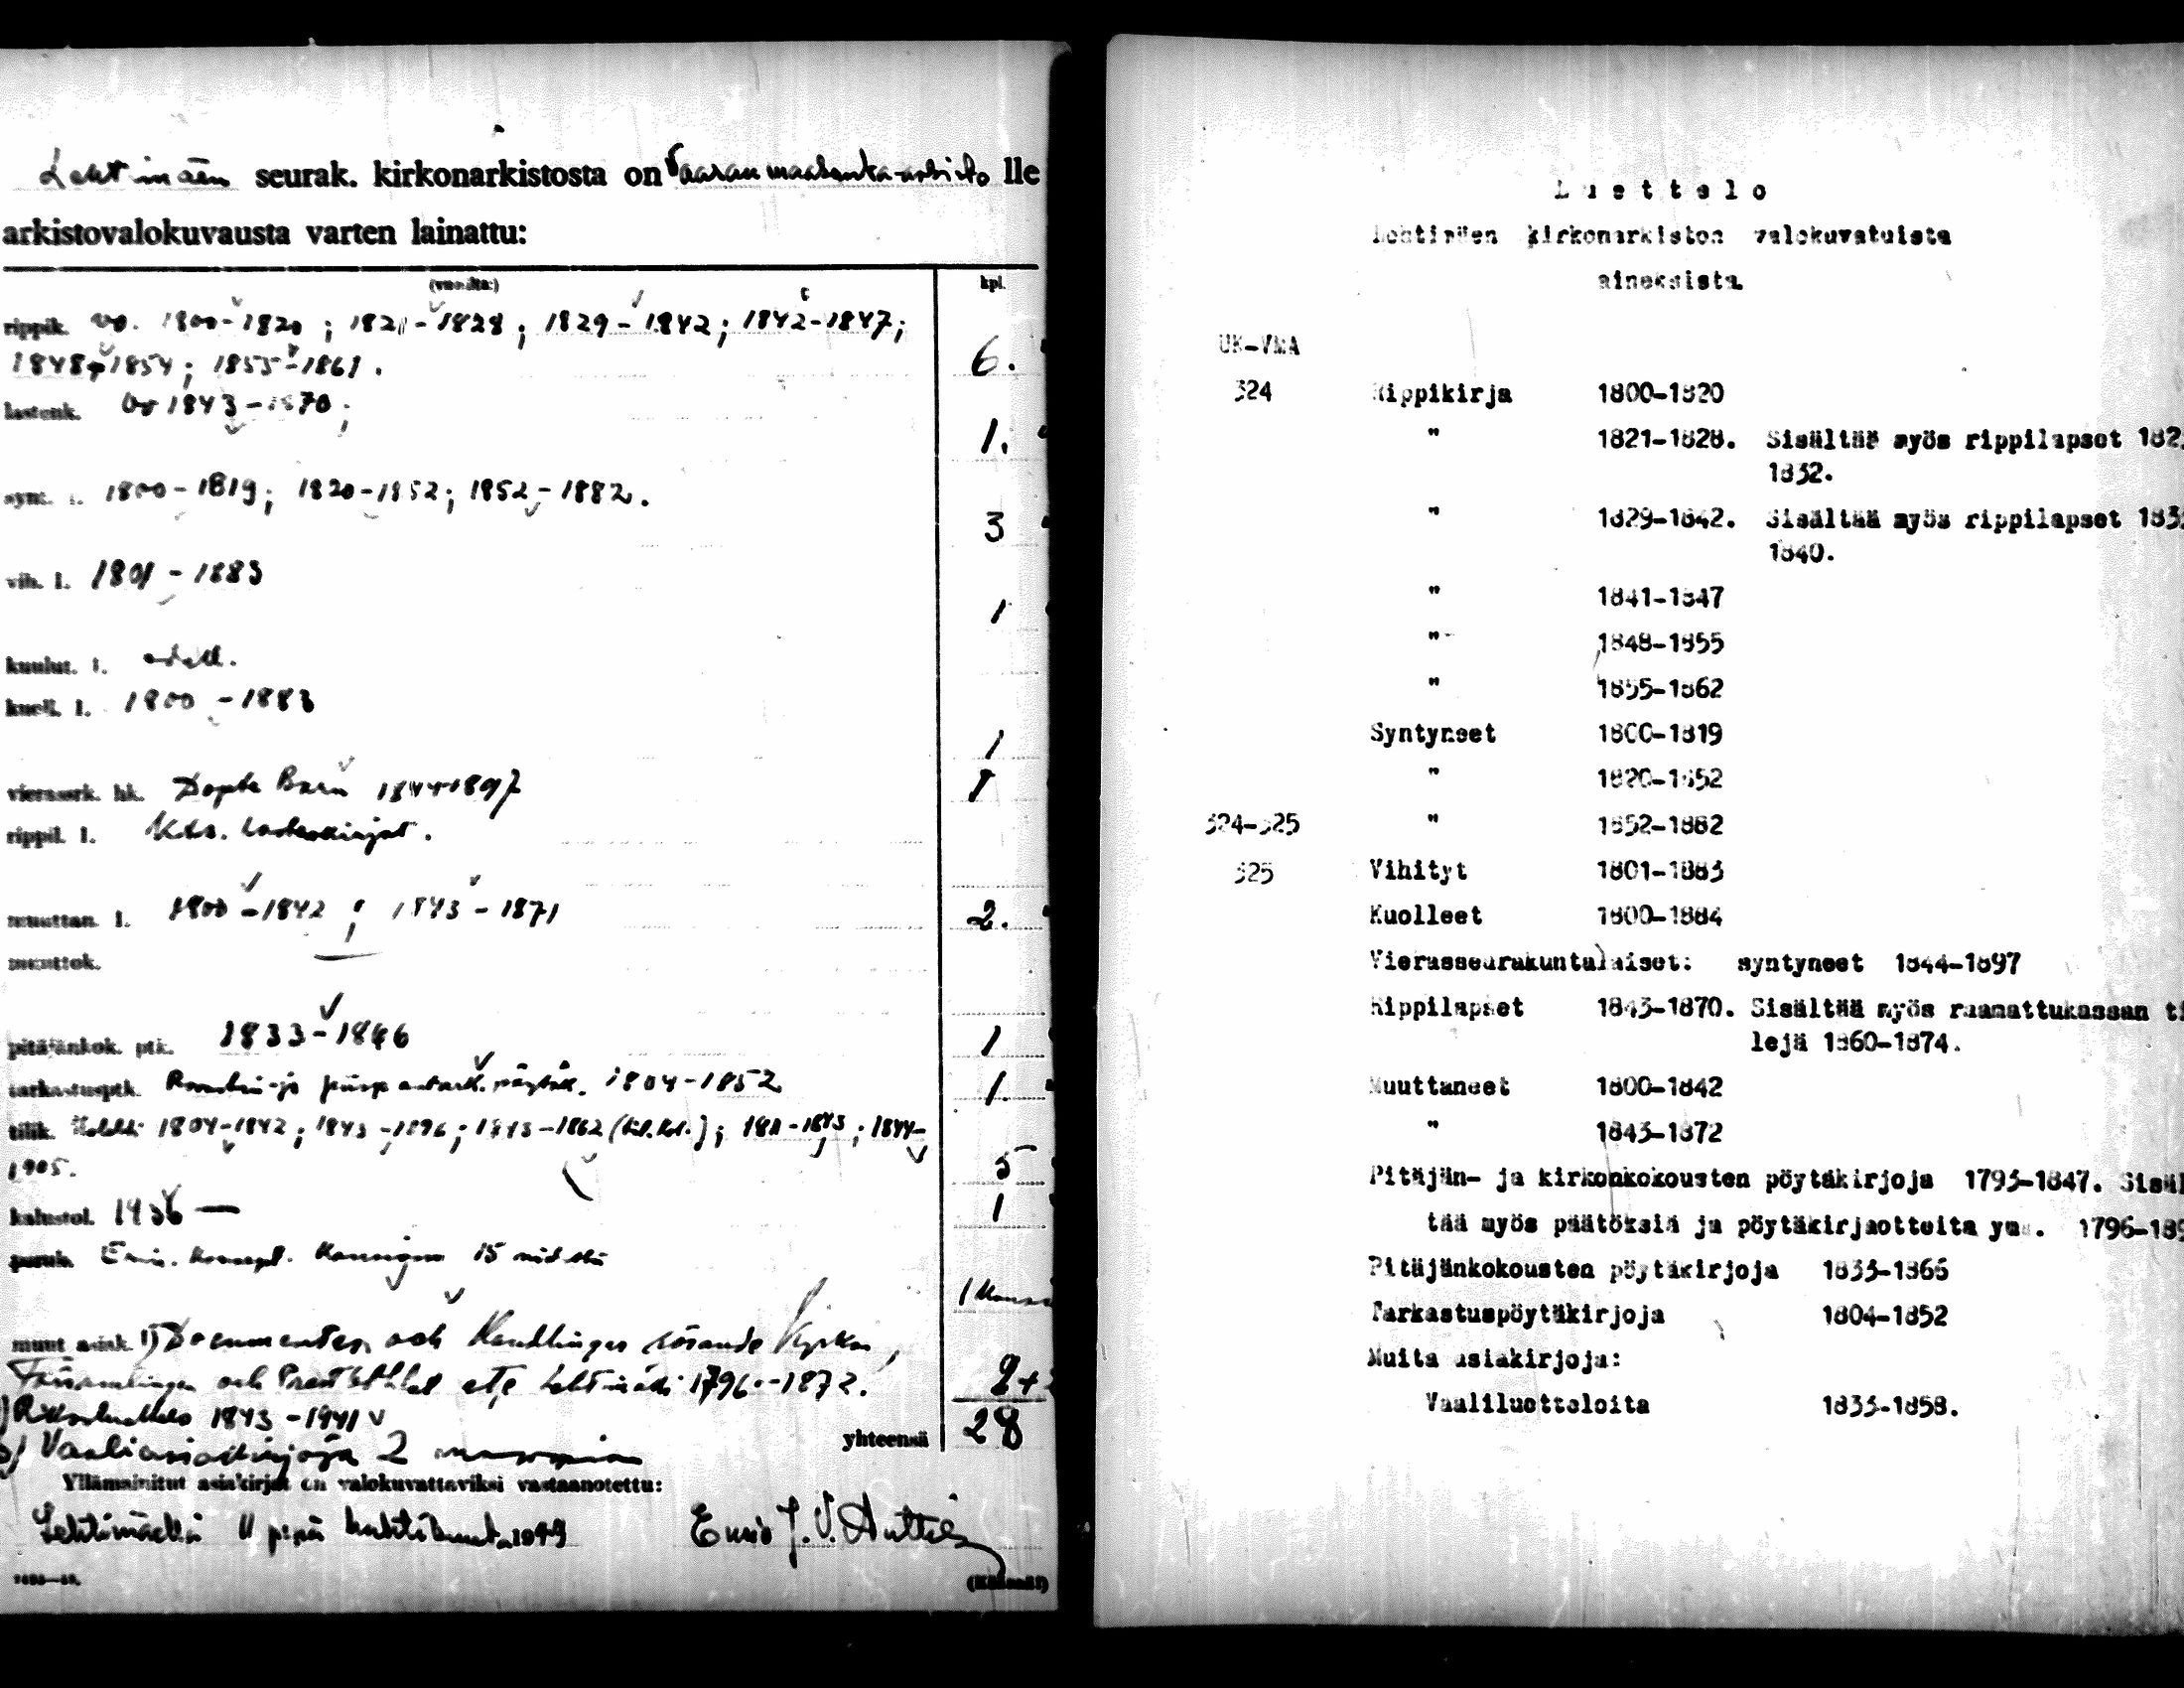 Lehtimäen seurak. kirkonarkistosta on Vaasan maakunta-arkisto lle
arkistovalokuvausta varten lainattu:
(vuosilta:) kpl.
rippik. vv. 1800-1820 ; 1821-1828 ; 1829-1842 ; 1842-1847 ;
1848-1854 ; 1855-1861 . 6.
lastenk. vv 1843-1870 ; 1.
synt. l. 1800-1819 ; 1820-1852 ; 1852-1882 . 3
vih. l. 1801-1883 1
kuulut. l.
kuoll. l. 1800-1883 1
vierassrk. hk. Döpte Barn 1844-1897 1
rippil. l. Kts. lastenkirjat .
muuttan. l. 1800-1842 ; 1843-1871 2.
muuttok.
pitäjänkok. ptk. 1833-1846 1
tarkastusptk. 1804-1852 1.
tilik. 1804-1842 ; 1843-1896 ; 1843-1862 ; 1811-1843 ; 1844-
1905. 5
kalustol. 1936 — 1
15
muut asiak. 1) Documenter och Handlingar rörande Kyrkan,
Församlingen och 1796-1872.
1843-1941
Vaaliasiakirjoja 2 yhteensä 28
Yllämainitut asiakirjat on valokuvattaviksi vastaanotettu:
Lehtimäellä p:nä huhtikuuta 1949 J. V.
Luettelo
Lehtimäen kirkonarkiston valokuvatuista
aineksista.
UK-VMA
324 Rippikirja 1800-1820
" 1821-1828. Sisältää myös rippilapset 182
1832.
" 1829-1842. Sisältää myös rippilapset 183
1840.
" 1841-1847
" 1848-1855
" 1855-1862
Syntyneet 1800-1819
" 1820-1852
324-325 " 1852-1882
325 Vihityt 1801-1883
Kuolleet 1800-1884
Vierasseurakuntalaiset: syntyneet 1844-1897
Rippilapset 1843-1870. Sisältää myös raamattukassan ti
lejä 1860-1874.
Muuttaneet 1800-1842
" 1843-1872
Pitäjän- ja kirkonkokousten pöytäkirjoja 1793-1847. Sisäl
tää myös päätöksiä ja pöytäkirjaotteita ym. 1796-18
Pitäjänkokousten pöytäkirjoja 1833-1866
Tarkastuspöytäkirjoja 1804-1852
Muita asiakirjoja:
Vaaliluetteloita 1833-1858.